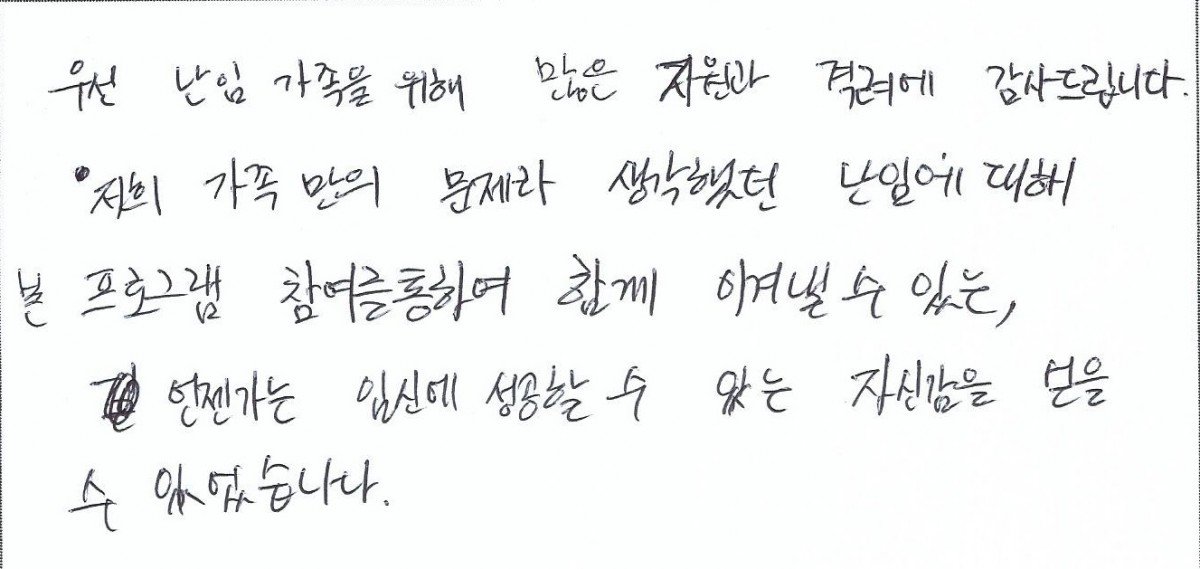 우선 난임 가족을 위해 많은 지원과 격려에 감사드립니다.
저희 가족 만의 문제라 생각했던 난임에 대해
본 프로그램 참여를통하여 함께 이겨낼 수 있는,
언젠가는 임신에 성공할 수 있는 자신감을 얻을
수 있었습니다.